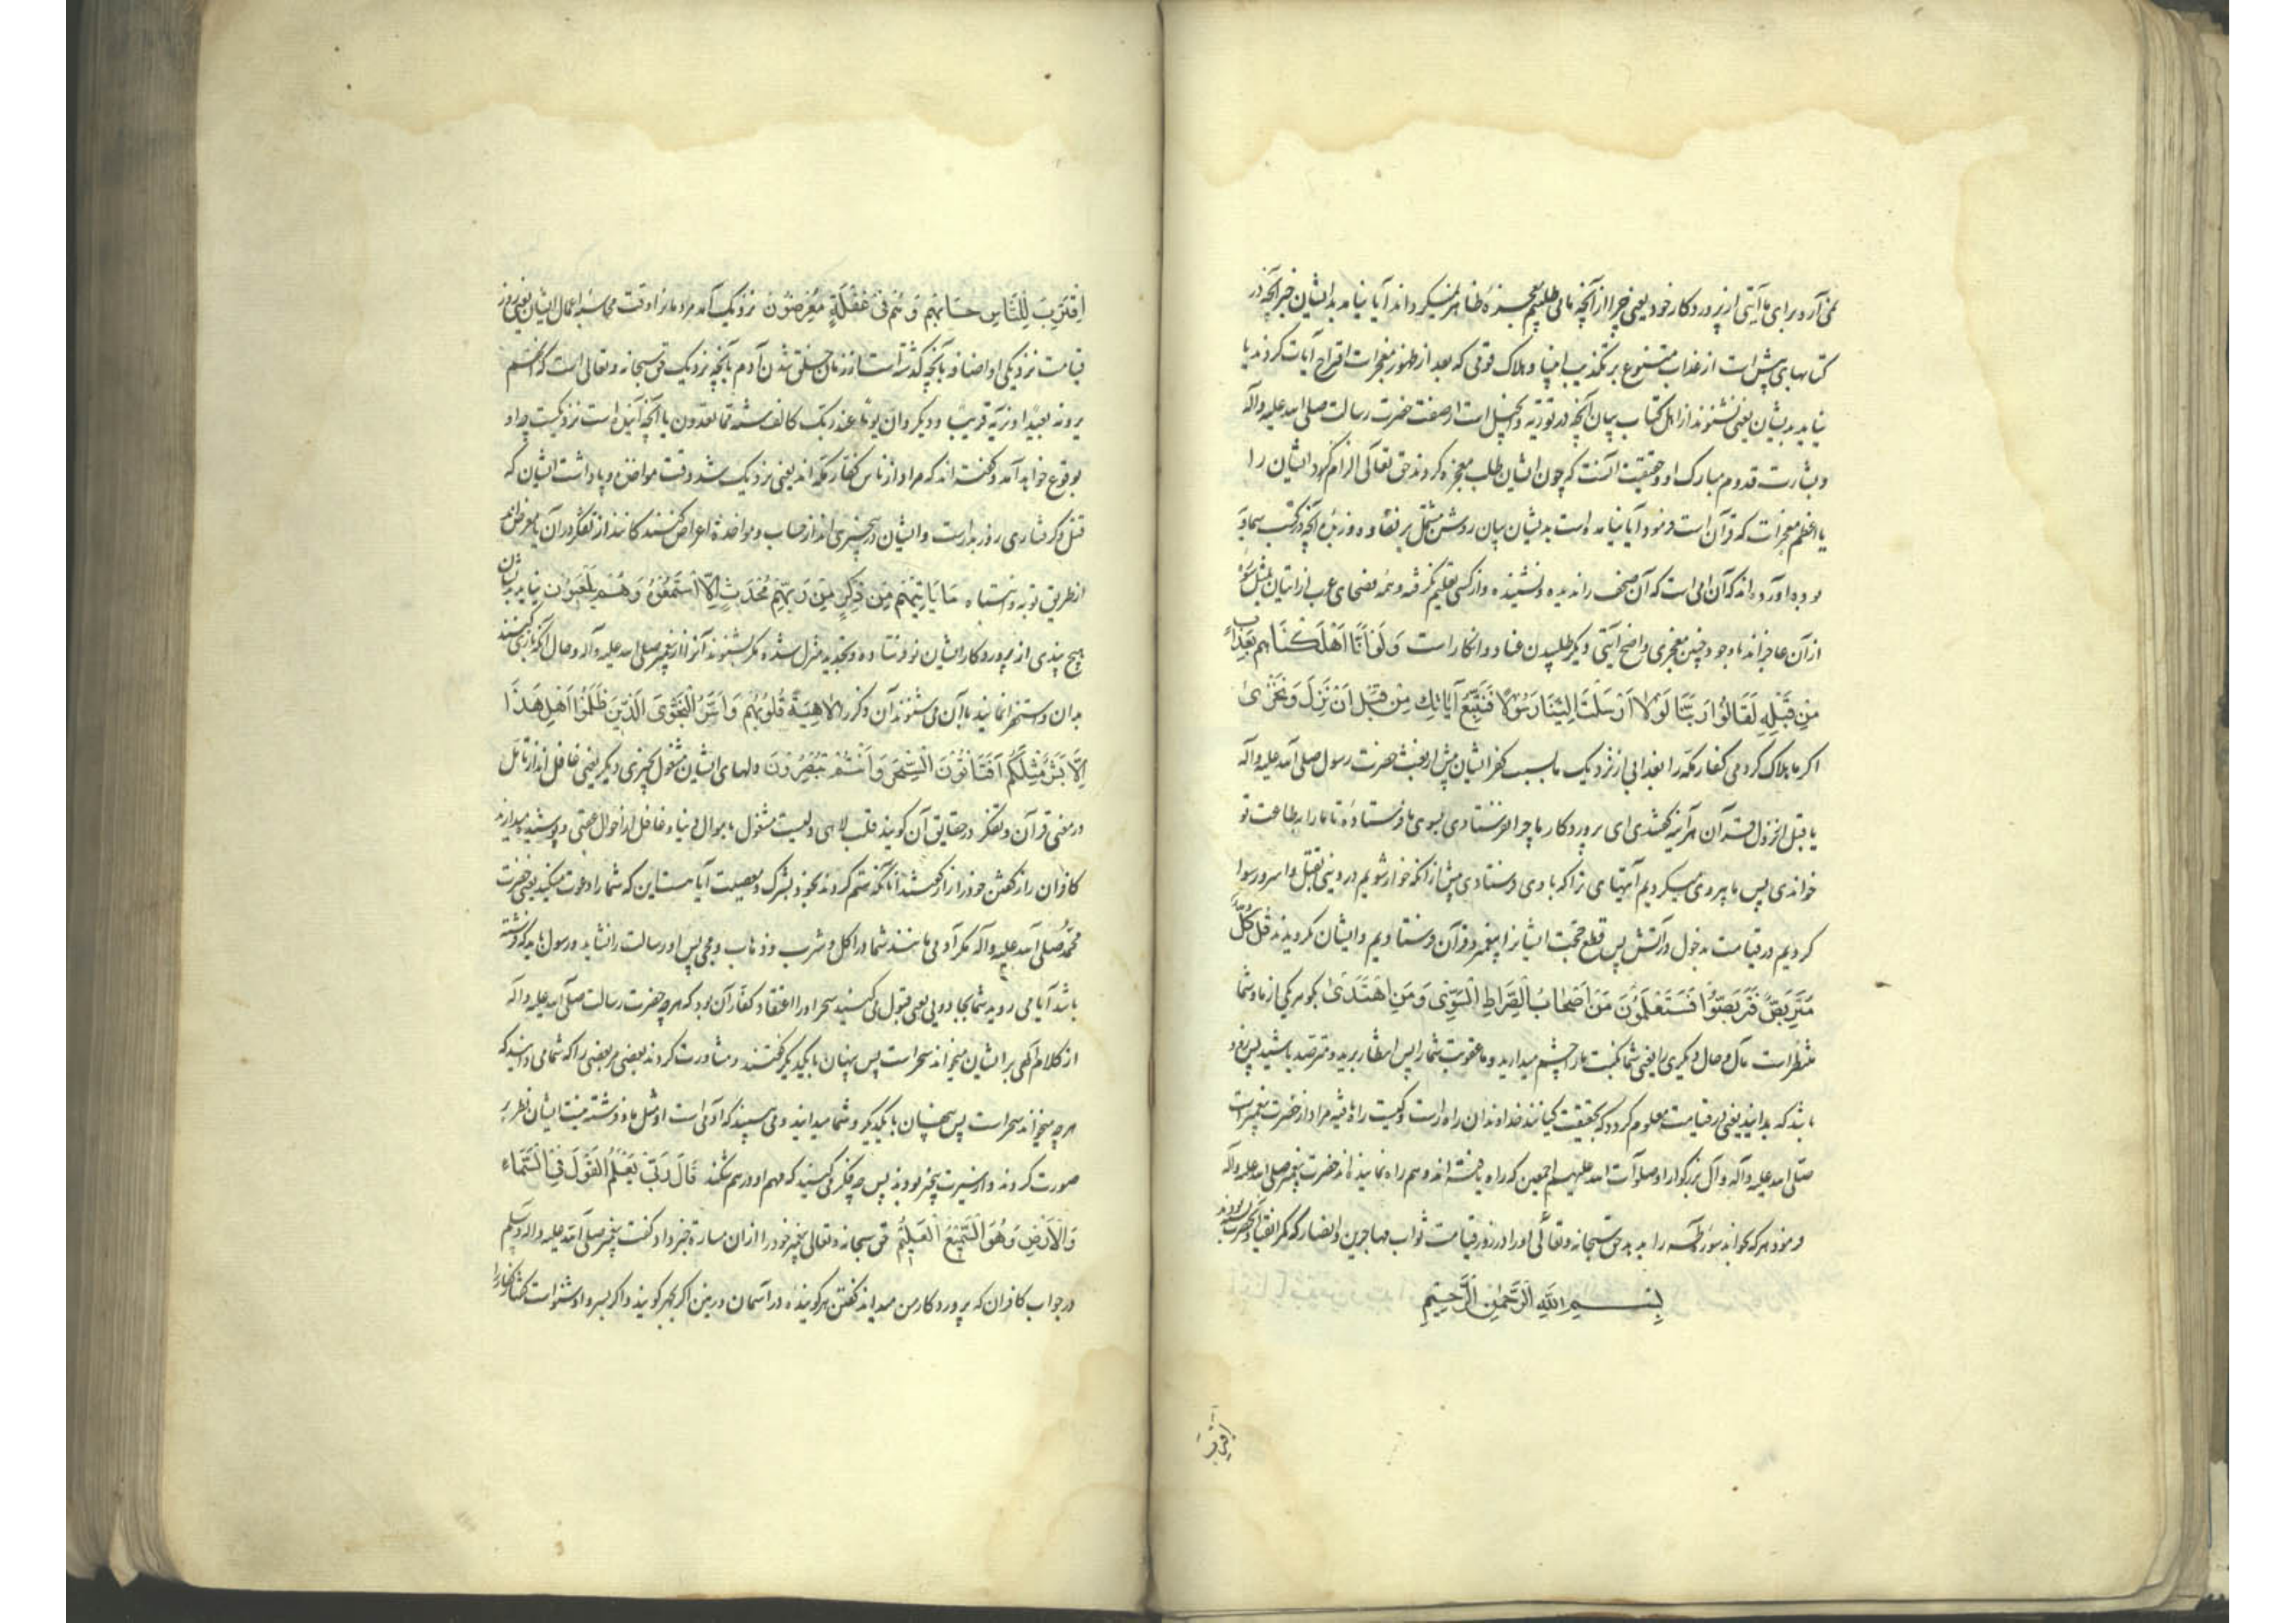 نمی آرد برای ما آیتی از پروردکار خود یعنی چرا از آنچه ما می طلبیم معجزهٔ ظاهر نمیکرداند آیا نیامد بدیشان خبر آنچه در
کتابهای پیش است از عذاب متنوع بر تکذیب انبیا و هلاک قومی که بعد از ظهور معجزات اقتراح آیات کردند یا
نیامد بدیشان یعنی نشنوند از اهل کتاب بیان آنچه در توریة و انجیل است از صفت حضرت رسالت صلی الله علیه وآله
و بشارت قدوم مبارک او و حقیقت آنست که چون ایشان طلب معجزه کردند حق تعالی الزام کرد ایشان را
با اعظم معجزات که قرآن است و فرمود آیا نیامده است بدیشان بیان روشن مشتمل بر نقاوه و زبدهٔ آنچه در کتب سماویه
بوده آورده اند که آن امی است که آن صحف را ندیده و نشنیده و از کسی تعلیم نکرفته و همه فصحای عرب از اتیان بمثل سورهٔ
از آن عاجزاند با وجود چنین معجزی واضح آیتی دیکر طلبیدن عناد و انکار است وَلَوْ اَنَّا اَهْلَكْنَاهُم بِعَذَابٍ
مِنْ قَبْلِهِ لَقَالُوا رَبَّنَا لَوْلَا اَرْسَلْتَ اِلَيْنَا رَسُولًا فَنَتَّبِعَ آيَاتِكَ مِنْ قَبْلِ اَنْ نَذِلَّ وَنَخْزَىٰ
اکر ما هلاک کردمی کفار مکه را بعذابی از نزدیک ما بسبب کفر ایشان پیش از بعثت حضرت رسول صلی الله علیه وآله
یا قبل از نزول قرآن هر آینه کفتندی ای پروردکار ما چرا نفرستادی بسوی ما فرستادهٔ تا ما را به طاعت تو
خواندی پس ما پیروی میکردیم آیتهای ترا که با وی فرستادی پیش از آنکه خوار شویم در دنیی بقتل و اسر و رسوا
کردیم در قیامت بدخول در آتش پس قطع حجت ایشانرا پیغمبر و قرآن فرستادیم و ایشان نکرویدند قُلْ كُلٌّ
مُتَرَبِّصٌ فَتَرَبَّصُوا فَسَتَعْلَمُونَ مَنْ اَصْحَابُ الصِّرَاطِ السَّوِيِّ وَمَنِ اهْتَدَىٰ بکو هر یکی از ما و شما
منتظر است مآل و حال دیکری را یعنی شما نکبت ما را چشم میدارید و ما عقوبت شما را پس انتظار برید و مترصد باشید پس زود
باشد که بدانید یعنی در قیامت معلوم کردد که بحقیقت کیانند خداوندان راه راست و کیست راه یافته مراد از حضرت پیغمبر است
صلّی الله علیه وآله وآل بزرکوار او صلوات الله علیهم اجمعین که راه یافته اند و هم راه نماینده اند حضرت پیغمبر صلی الله علیه وآله
فرمود هر که بخواند سورهٔ طه را بدهد حق سبحانه و تعالی او را در روز قیامت ثواب مهاجرین و انصار که
بِسْمِ اللَّهِ الرَّحْمَٰنِ الرَّحِيمِ
اِقْتَرَبَ
اِقْتَرَبَ لِلنَّاسِ حِسَابُهُمْ وَهُمْ فِي غَفْلَةٍ مُعْرِضُونَ نزدیک آمد مر مردمانرا وقت محاسبهٔ اعمال ایشان یعنی روز
قیامت نزدیکی او اضافه بآنچه کذشته است از زمان خلق شدن آدم یا آنچه نزدیک حق سبحانه و تعالی است که انهم
یرونه بعیدا و نریه قریبا و دیکر وان یوما عند ربک کالف سنة مما تعدون یا آنچه آینده است نزدیکست چه او
بوقوع خواهد آمد و کفته اند که مراد از ناس کفار مکه اند یعنی نزدیک شد وقت مواخذه و پاداشت ایشان که
قتل و کرفتاری روز بدر است و ایشان در بیخبری اند از حساب و مواخذه اعراض کنندکانند از تفکر در آن یا معرض اند
از طریق توبه و انتباه مَا يَأْتِيهِمْ مِنْ ذِكْرٍ مِنْ رَبِّهِمْ مُحْدَثٍ اِلَّا اسْتَمَعُوهُ وَهُمْ يَلْعَبُونَ نیاید بدیشان
هیچ پندی از پروردکار ایشان نو فرستاده و بتجدید منزل شده مکر بشنوند آنرا از پیغمبر صلی الله علیه وآله و حال آنکه بازی کنند
بدان و استهزا نمایند یا آن می شنوند آن ذکر را لَاهِيَةً قُلُوبُهُمْ وَاَسَرُّوا النَّجْوَى الَّذِينَ ظَلَمُوا هَلْ هَذَا
اِلَّا بَشَرٌ مِثْلُكُمْ اَفَتَأْتُونَ السِّحْرَ وَاَنْتُمْ تُبْصِرُونَ دلهای ایشان مشغول بچیزی دیکر یعنی غافل اند از تامل
در معنی قرآن و تفکر در حقایق آن کویند قلب لاهی دلیست مشغول باموال دنیا و غافل از احوال عقبی و پوشیده میدارند
کافران راز کفتن خود را راز کفتند آنانکه ستم کردند بخود بشرک و معصیت آیا هست این که شما را دعوت میکند یعنی حضرت
محمد صلی الله علیه وآله مکر آدمی مانند شما در اکل و شرب و ذهاب و مجی پس او رسالت را نشاید و رسول باید که فرشته
باشد آیا می روید شما بجادویی یعنی قبول می کنید سحر او را اعتقاد کفار آن بود که هر چه حضرت رسالت صلی الله علیه وآله
از کلام الهی بر ایشان میخواند سحر است پس پنهان با یکدیکر کفتند و مشاورت کردند بعضی مر بعضی را که شما می دانید که
هر چه میخواند سحر است پس همچنان با یکدیکر و شما میدانید و می بینید که آدمی است او مثل ما و فرشته نیست ایشان نظر بر
صورت کردند و از سیرت بیخبر بودند پس چه فکر می کنید که مهم او در هم شکند قَالَ رَبِّي يَعْلَمُ الْقَوْلَ فِي السَّمَاءِ
وَالْاَرْضِ وَهُوَ السَّمِيعُ الْعَلِيمُ حق سبحانه و تعالی پیغمبر خود را از آن مسارة خبر داد کفت پیغمبر صلی الله علیه وآله وسلم
در جواب کافران که پروردکار من میداند کفتن هر کوینده در آسمان و زمین اکر بجهر کویند و اکر بسر و او شنواست